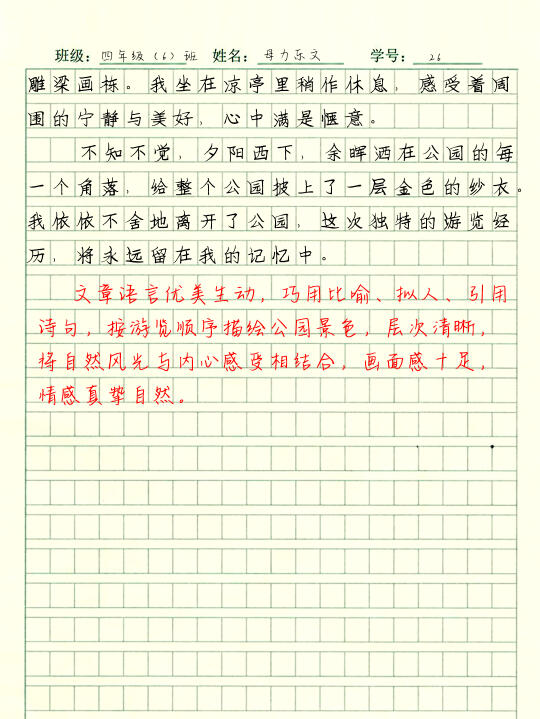 班级：四年级（6）班 姓名：母力乐文 学号：26
雕梁画栋。我坐在凉亭里稍作休息，感受着周
围的宁静与美好，心中满是惬意。
不知不觉，夕阳西下，余晖洒在公园的每
一个角落，给整个公园披上了一层金色的纱衣。
我依依不舍地离开了公园，这次独特的游览经
历，将永远留在我的记忆中。
文章语言优美生动，巧用比喻、拟人、引用
诗句，按游览顺序描绘公园景色，层次清晰，
将自然风光与内心感受相结合，画面感十足，
情感真挚自然。